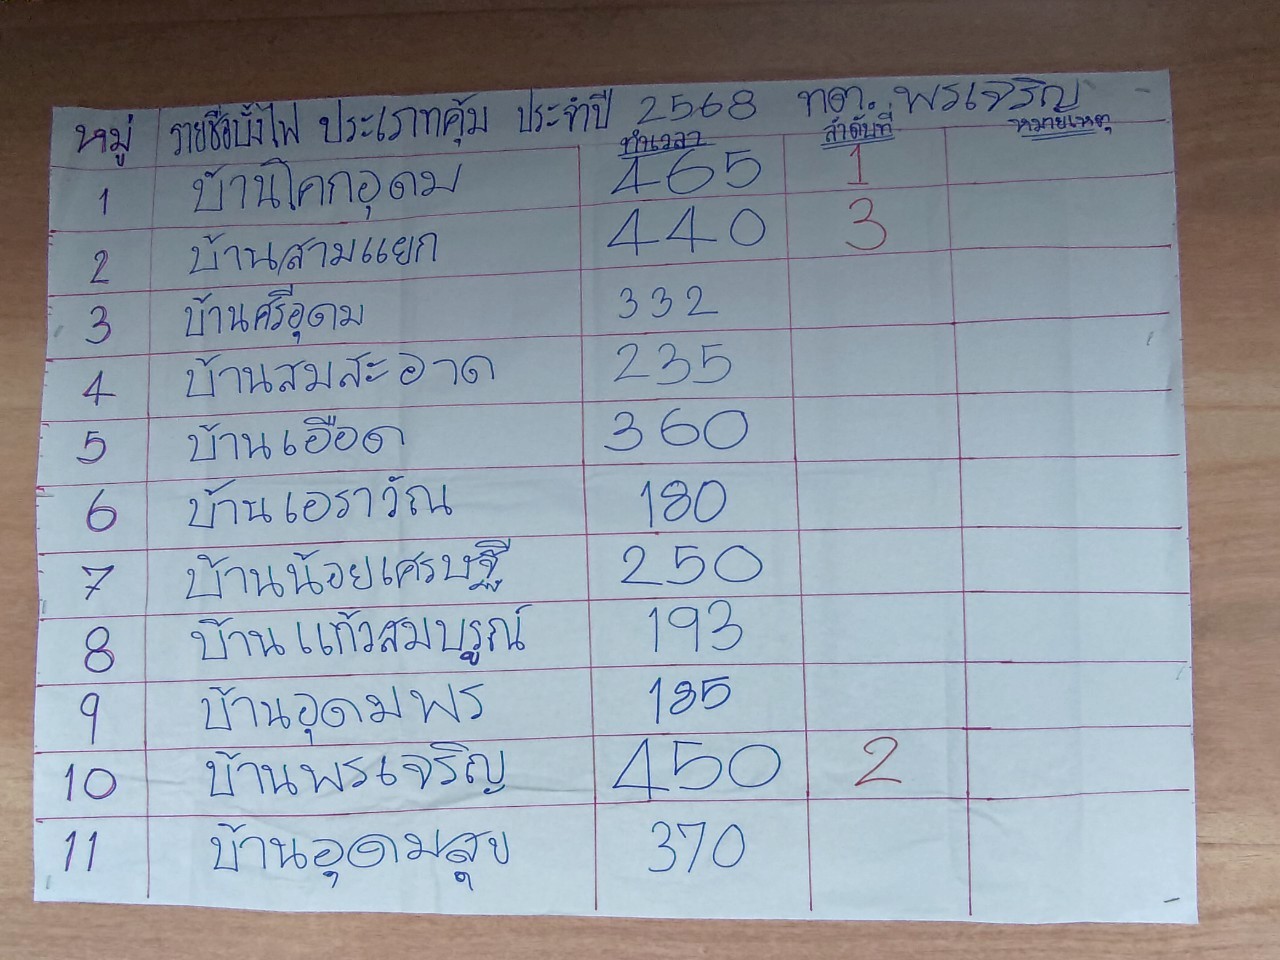 หมู่ รายชื่อบั้งไฟ ประเภทคุ้ม ประจำปี 2568 ทต. พรเจริญ
ทำเวลา ลำดับที่ หมายเหตุ
1 บ้านโคกอุดม 465 1
2 บ้านสามแยก 440 3
3 บ้านศรีอุดม 332
4 บ้านสมสะอาด 235
5 บ้านเอือด 360
6 บ้านเอราวัณ 180
7 บ้านน้อยเศรษฐี 250
8 บ้านแก้วสมบรูณ์ 193
9 บ้านอุดมพร 185
10 บ้านพรเจริญ 450 2
11 บ้านอุดมสุข 370